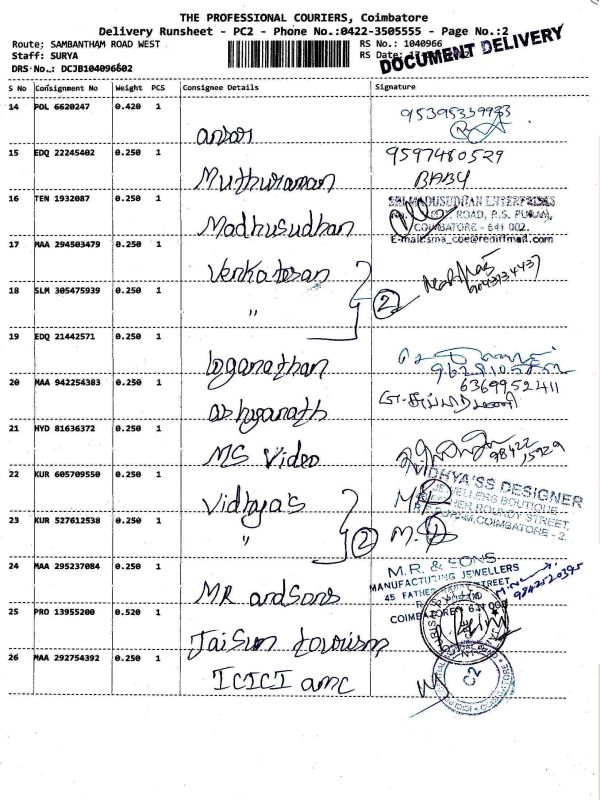 THE PROFESSIONAL COURIERS, Coimbatore
Delivery Runsheet - PC2 - Phone No.:0422-3505555 - Page No.:2
Route; SAMBANTHAM ROAD WEST RS No.: 1040966
Staff: SURYA RS Date:
DRS No.,: DCJB104096602 DOCUMENT DELIVERY
S No Consignment No Weight PCS Consignee Details Signature
14 POL 6620247 0.420 1 95395339983
15 EDQ 22245402 0.250 1 Muthuraman 9597480529
BABY
16 TEN 1932087 0.250 1 Madhusudhan SRI MADUSUDHAN ENTERPRISES
ROAD, R.S. PURAM,
COIMBATORE - 641 002.
17 MAA 294503479 0.250 1 Venkatesan
18 SLM 305475939 0.250 1 " 2
19 EDQ 21442571 0.250 1 Loganathan
20 MAA 942254383 0.250 1 6369952411
21 HYD 81636372 0.250 1 MS Video 98422 15929
22 KUR 605709550 0.250 1 Vidhya's VIDHYA'SS DESIGNER
JEWELLERS BOUTIQUE
STREET,
COIMBATORE - 2.
23 KUR 527612538 0.250 1 " 2
24 MAA 295237084 0.250 1 MR and Sons M.R. & SONS
MANUFACTURING JEWELLERS
45 FATHER STREET
COIMBATORE
9842520395
25 PRO 13955200 0.520 1 Jaisun tourism
26 MAA 292754392 0.250 1 ICICI amc